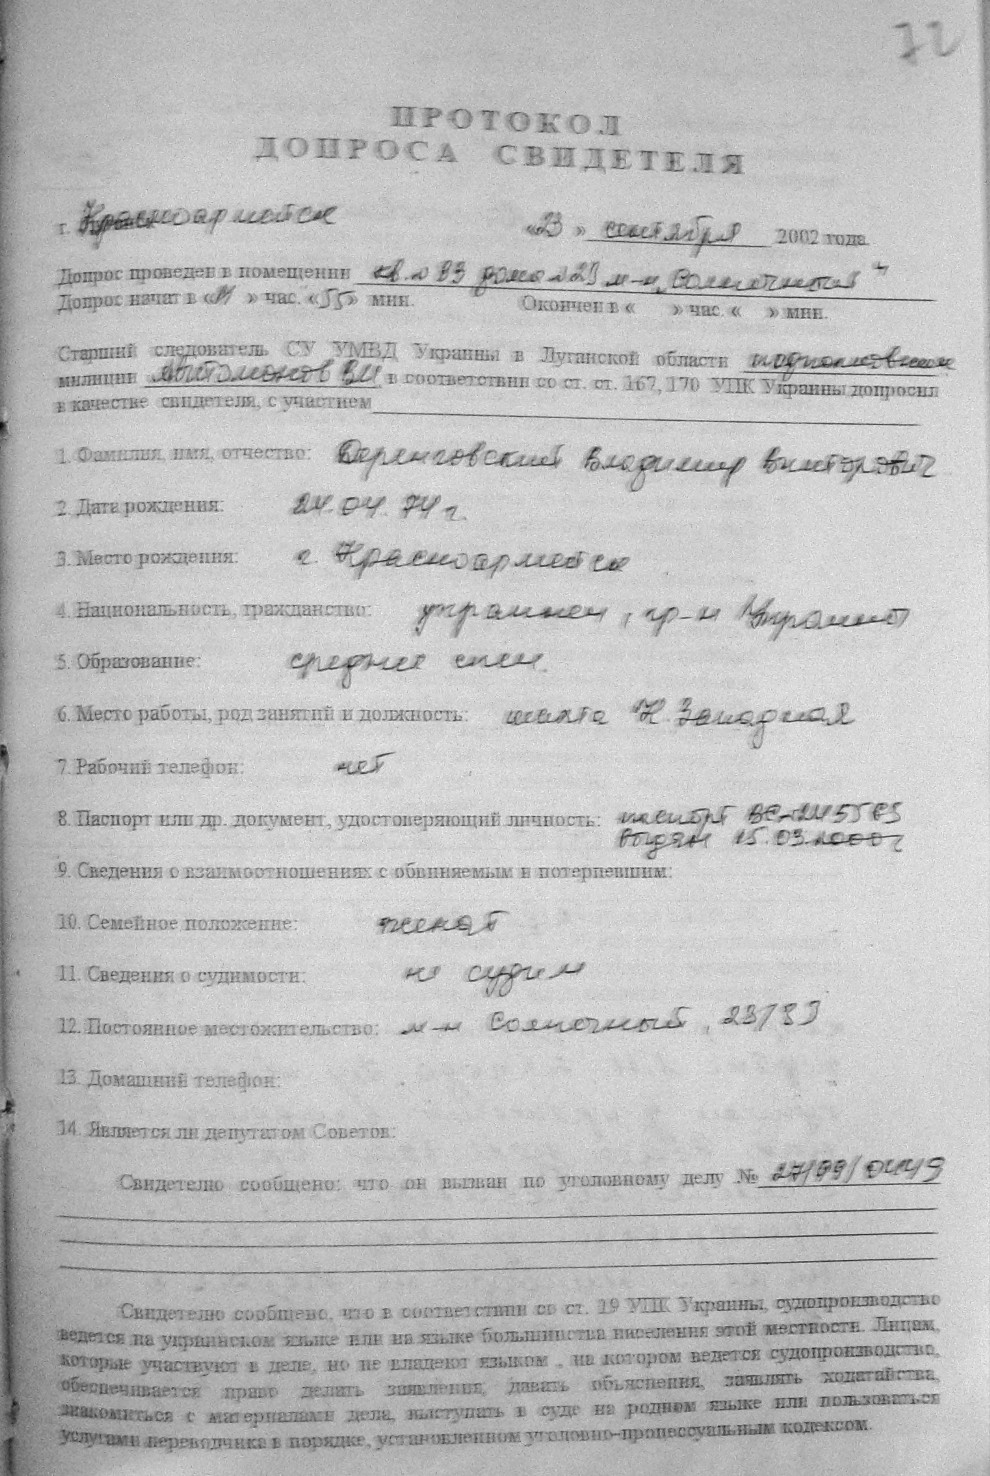 72
ПРОТОКОЛ
ДОПРОСА СВИДЕТЕЛЯ
г. Красноармейск «23» сентября 2002 года.
Допрос проведен в помещении кв. 83 дома №23 м-н „Солнечный"
Допрос начат в « » час. «55» мин. Окончен в « » час. « » мин.
Старший следователь СУ УМВД Украины в Луганской области подполковник
милиции Автомонов В.И. в соответствии со ст. ст. 167, 170 УПК Украины допросил
в качестве свидетеля, с участием
1. Фамилия, имя, отчество: Деренговский Владимир Викторович
2. Дата рождения: 24.04.74 г.
3. Место рождения: г. Красноармейск
4. Национальность, гражданство: украинец, гр-н Украины
5. Образование: средне спец.
6. Место работы, род занятий и должность: шахта Западная
7. Рабочий телефон: нет
8. Паспорт или др. документ, удостоверяющий личность: паспорт
выдан 15.03.2000 г
9. Сведения о взаимоотношениях с обвиняемым и потерпевшим:
10. Семейное положение: женат
11. Сведения о судимости: не судим
12. Постоянное местожительство: м-н Солнечный, 23/83
13. Домашний телефон:
14. Является ли депутатом Советов:
Свидетелю сообщено: что он вызван по уголовному делу № 27/99/0449
Свидетелю сообщено, что в соответствии со ст. 19 УПК Украины, судопроизводство
ведется на украинском языке или на языке большинства населения этой местности. Лицам,
которые участвуют в деле, но не владеют языком , на котором ведется судопроизводство,
обеспечивается право делать заявления, давать объяснения, заявлять ходатайства,
знакомиться с материалами дела, выступать в суде на родном языке или пользоваться
услугами переводчика в порядке, установленном уголовно-процессуальным кодексом.